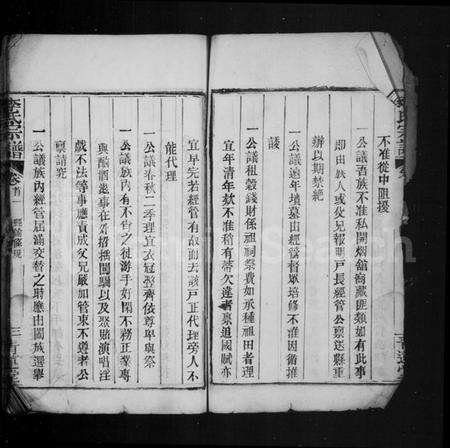 不准從中阻援
一公議酒族不准私開烟舘窩藏匪類如有此事
即由族人或父兄報明戶長經管公禀送縣重
辦以期禁絶
一公議遠年墳墓由經管督眾培修不准因循推
諉
一公議租穀錢財係祖祠祭費如承種祖田者理
宜年清年款不准稍有蒂欠違者禀追國賦亦
宜早完若經管有故而去該戶正代理旁人不
能代理
一公議春秋二季理宜衣冠整齊依尊卑與祭
一公議族內有不肖之徒游手好閒不務正業專
與酗酒滋事在外招搖闖騙以及聚賭演唱淫
戲不法等事應責成父兄嚴加管束不遵者公
禀請究
一公議族內經管屆滿交替之時應由闔族選舉
李氏宗譜
卷首
三